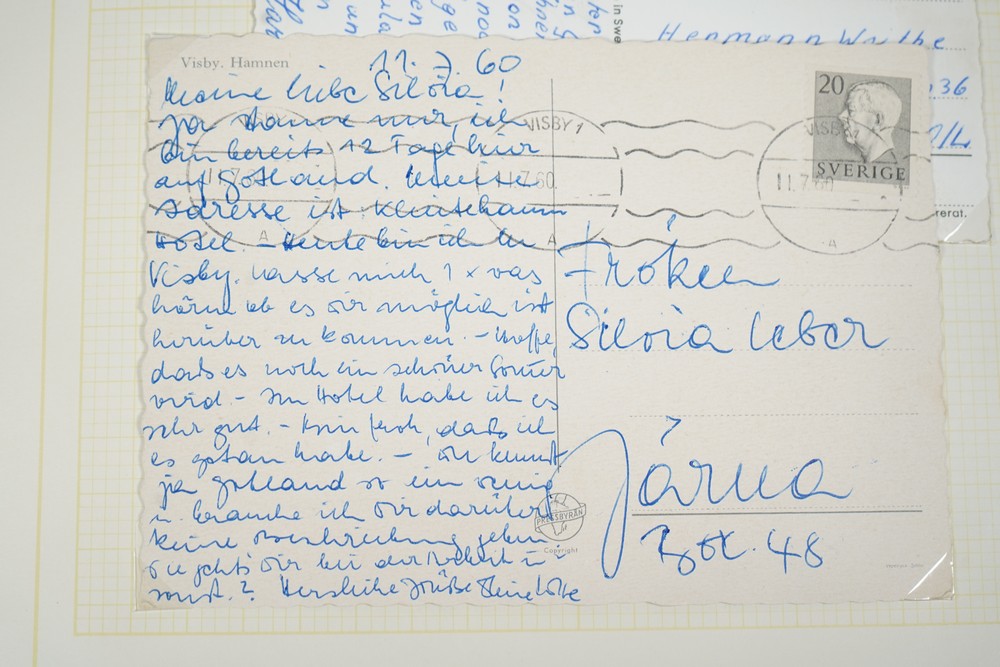 Hermann
36
in Swe
rerat.
Visby. Hamnen
11. 7. 60
Meine liebe Silvia!
ja staune nur, ich
bin bereits 12 Tage hier
auf Gotland. Meine
Adresse ist Klintehamn
Hotel. – Heute bin ich in
Visby. Lasse mich 1 x was
hören ob es dir möglich ist
herüber zu kommen. – Hoffe,
dass es noch ein schöner Sommer
wird. – Im Hotel habe ich es
sehr gut. – Bin froh, dass ich
es getan habe. – Du kennst
ja Gotland so ein wenig
u. brauche ich dir darüber
keine Beschreibung geben.
Wie geht's dir bei der Arbeit u.
sonst? Herzliche Grüße Deine
20
SVERIGE
VISBY 1
11.7.60
A
VISBY 1
11.7.60
A
Fröken
Silvia Leber
Järna
Box. 48
PRESSBYRÅN
Copyright